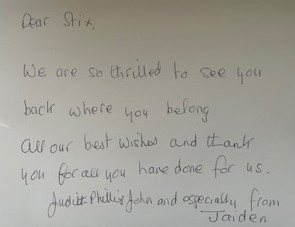 Dear Stix,
We are so thrilled to see you
back where you belong
All our best wishes and thank
you for all you have done for us.
Judith Phillis John and especially from
Jaiden